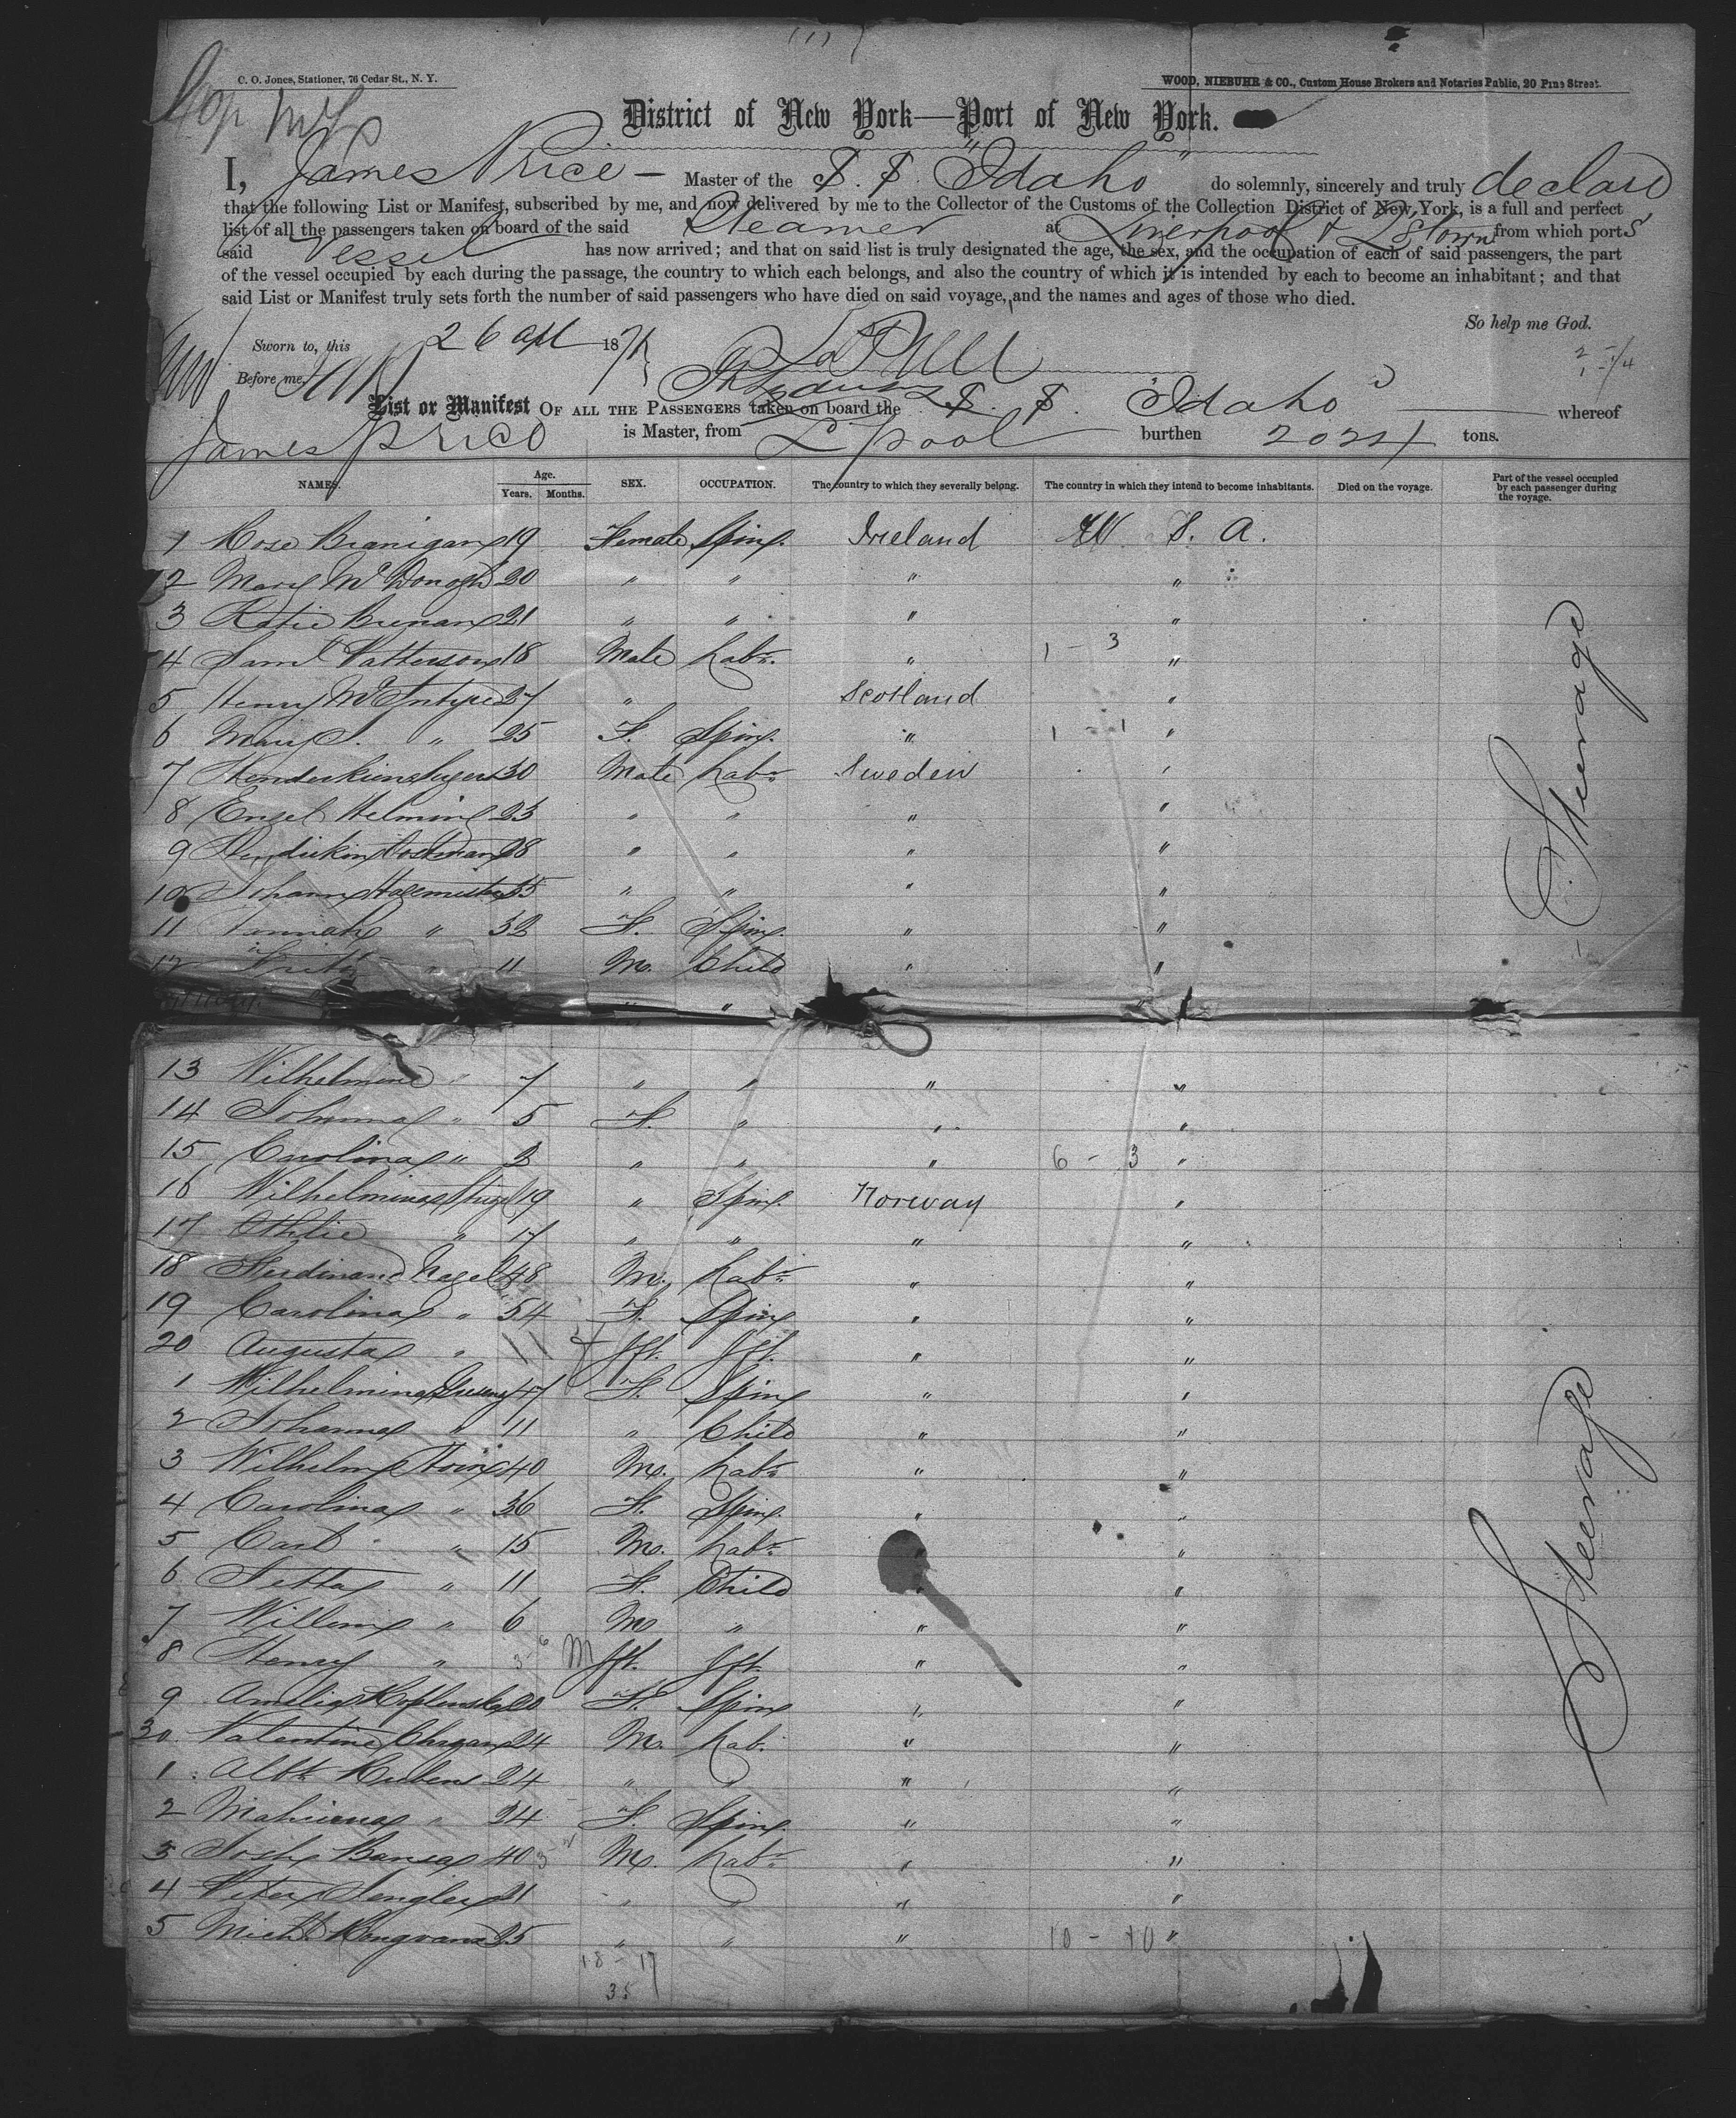 C. O. Jones, Stationer, 76 Cedar St., N. Y.
WOOD, NIEBUHR & CO., Custom House Brokers and Notaries Public, 20 Pine Street.
District of New York—Port of New York.
I, James Price — Master of the S. S. "Idaho" do solemnly, sincerely and truly declare
that the following List or Manifest, subscribed by me, and now delivered by me to the Collector of the Customs of the Collection District of New York, is a full and perfect
list of all the passengers taken on board of the said Steamer at Liverpool & Qstown from which ports
said Vessel has now arrived; and that on said list is truly designated the age, the sex, and the occupation of each of said passengers, the part
of the vessel occupied by each during the passage, the country to which each belongs, and also the country of which it is intended by each to become an inhabitant; and that
said List or Manifest truly sets forth the number of said passengers who have died on said voyage, and the names and ages of those who died.
So help me God.
Sworn to, this 26 Apl 187
Before me,
List or Manifest OF ALL THE PASSENGERS taken on board the S. S. Idaho whereof
James Price is Master, from L'pool burthen tons.
NAMES. Age. Years. Months. SEX. OCCUPATION. The country to which they severally belong. The country in which they intend to become inhabitants. Died on the voyage. Part of the vessel occupied by each passenger during the voyage.
1 Rose Branigan 19 Female Spinr. Ireland U. S. A.
2 Mary McDonogh 20 " " " "
3 Katie Brenan 21 " " " "
4 Saml Patterson 18 Male Labr. " 1 - 3 "
5 Henry McIntyre 27 " Scotland "
6 Mary J. " 25 F. Spinr. " 1 - 1 "
7 30 Male Labr Sweden "
8 Engel Helming 23 " " " "
9 28 " " " "
10 Johann Hagemister 35 " " " "
11 Hannah " 32 F. Spinr. " "
12 Fritz " 11 M. Child " "
" "
13 Wilhelmine " 7 " " " "
14 Johanna " 5 F. " " "
15 Carolina " 2 " " " 6 - 3 "
16 Wilhelmina 19 " Spinr. Norway "
17 Othlie " 17 " " " "
18 Ferdinand Nagel 48 M. Labr " "
19 Carolina " 54 F. Spinr " "
20 Augusta " 11 f Jft. Jft. " "
1 Wilhelmina 47 F. Spinr " "
2 Johanna " 11 " Child " "
3 Wilhelm 40 M. Labr " "
4 Carolina " 36 F. Spinr. " "
5 Carl " 15 M. Labr " "
6 Jetta " 11 F. Child " "
7 Willem " 6 M " " "
8 Henry " M Jft. Jft. " "
9 Amelia 20 F. Spinr " "
30 Valentine 24 M. Lab. " "
1 Albt Rubens 24 " " " "
2 " 24 F. Spinr. " "
3 Josh 40 M. Labr " "
4 Peter 21 " " " "
5 Michl. 25 " " " 10 - 10 "
18 - 17
35
Steerage
Steerage